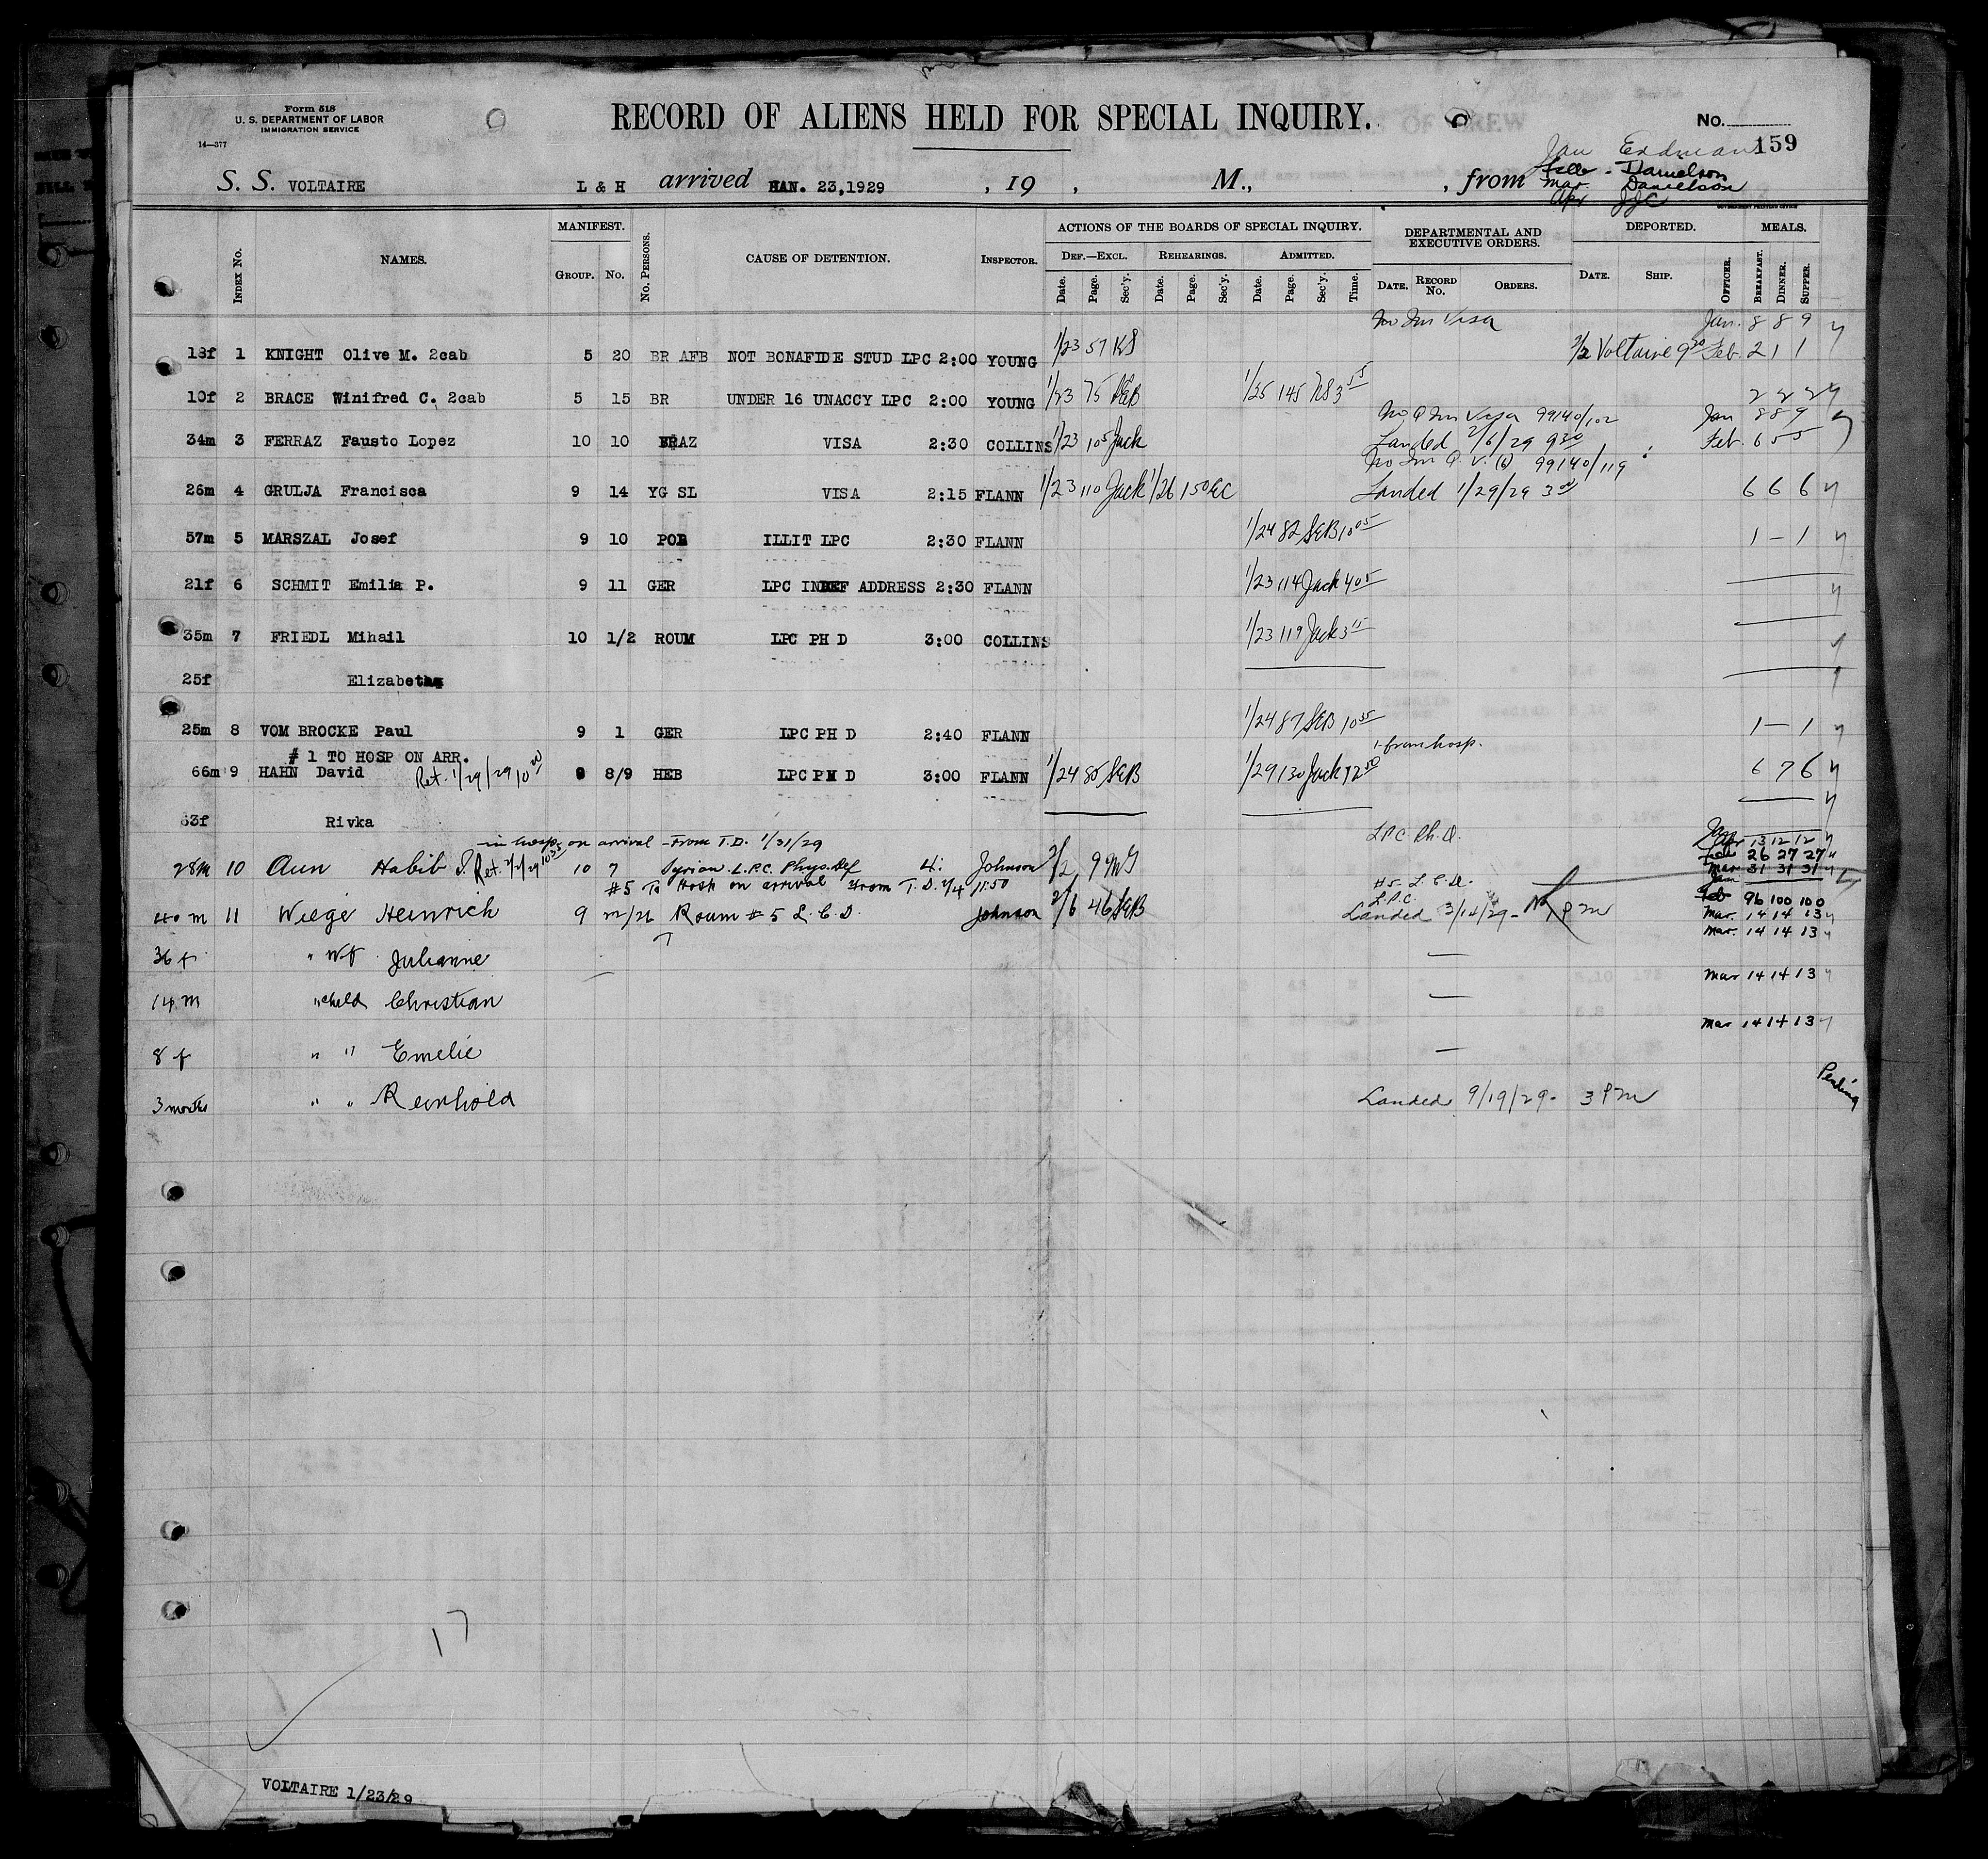 Form 518
U. S. DEPARTMENT OF LABOR
IMMIGRATION SERVICE
14—377
RECORD OF ALIENS HELD FOR SPECIAL INQUIRY.
No.
159
Jan Erdman
Danielson
Mar. Danielson
Apr JJC
S. S. VOLTAIRE L & H arrived HAN. 23,1929 , 19 , M., , from
GOVERNMENT PRINTING OFFICE
INDEX NO. NAMES. MANIFEST. GROUP. NO. NO. PERSONS. CAUSE OF DETENTION. INSPECTOR.
ACTIONS OF THE BOARDS OF SPECIAL INQUIRY. DEF.—EXCL. REHEARINGS. ADMITTED.
Date. Page. Sec'y. Date. Page. Sec'y. Date. Page. Sec'y. Time.
DEPARTMENTAL AND EXECUTIVE ORDERS. DATE. RECORD NO. ORDERS.
DEPORTED. DATE. SHIP. OFFICER.
MEALS. BREAKFAST. DINNER. SUPPER.
No Im Visa Jan. 8 8 9
18f 1 KNIGHT Olive M. 2cab 5 20 BR AFB NOT BONAFIDE STUD LPC 2:00 YOUNG 1/23 57 2/2 Voltaire 9 30 Feb. 2 1 1
10f 2 BRACE Winifred C. 2cab 5 15 BR UNDER 16 UNACCY LPC 2:00 YOUNG 1/23 75 SEB 1/25 145 3 55 2 2 2
No Q Im Visa 99140/102 Jan 8 8 9
34m 3 FERRAZ Fausto Lopez 10 10 BRAZ VISA 2:30 COLLINS 1/23 105 Jack Landed 2/6/29 9 30 Feb. 6 5 5
No Im Q. V. 99140/119
26m 4 GRULJA Francisca 9 14 YG SL VISA 2:15 FLANN 1/23 110 Jack 1/26 150 Landed 1/29/29 6 6 6
57m 5 MARSZAL Josef 9 10 POL ILLIT LPC 2:30 FLANN 1/24 82 SEB 10 05 1 — 1
21f 6 SCHMIT Emilia P. 9 11 GER LPC INDEF ADDRESS 2:30 FLANN 1/23 114 Jack 4 05
35m 7 FRIEDL Mihail 10 1/2 ROUM LPC PH D 3:00 COLLINS 1/23 119 Jack 3 15
25f Elizabeth
25m 8 VOM BROCKE Paul 9 1 GER LPC PH D 2:40 FLANN 1/24 87 SEB 10 35 1 — 1
# 1 TO HOSP ON ARR. 1 from hosp.
66m 9 HAHN David Ret. 1/29/29 10 20 8/9 HEB LPC PH D 3:00 FLANN 1/24 85 SEB 1/29 130 Jack 12 50 6 7 6
63f Rivka
in hosp. on arrival - From T.D. 1/31/29 LPC Ph.D. Apr 13 12 12
28m 10 Aun Habib Ret. 10 7 Syrian L.P.C. Phys. Def 4: Johnson 2/2 9 26 27 27
#5 To Hosp on arrival From T.D. 2/4 11:50 Mar 31 31 31
#5 L.C.D. Jan
L.P.C. Feb 96 100 100
40 m 11 Weege Heinrich 9 22/26 Roum #5 L.C.D. Johnson 2/6 46 SEB Landed 3/14/29 - PM Mar. 14 14 13
Mar. 14 14 13
36 f " Wf Julianne
Mar 14 14 13
14 m " child Christian
Mar 14 14 13
8 f " " Emelie
Pending
3 months " " Reinhold Landed 9/19/29 - 3 PM
17
VOLTAIRE 1/23/29